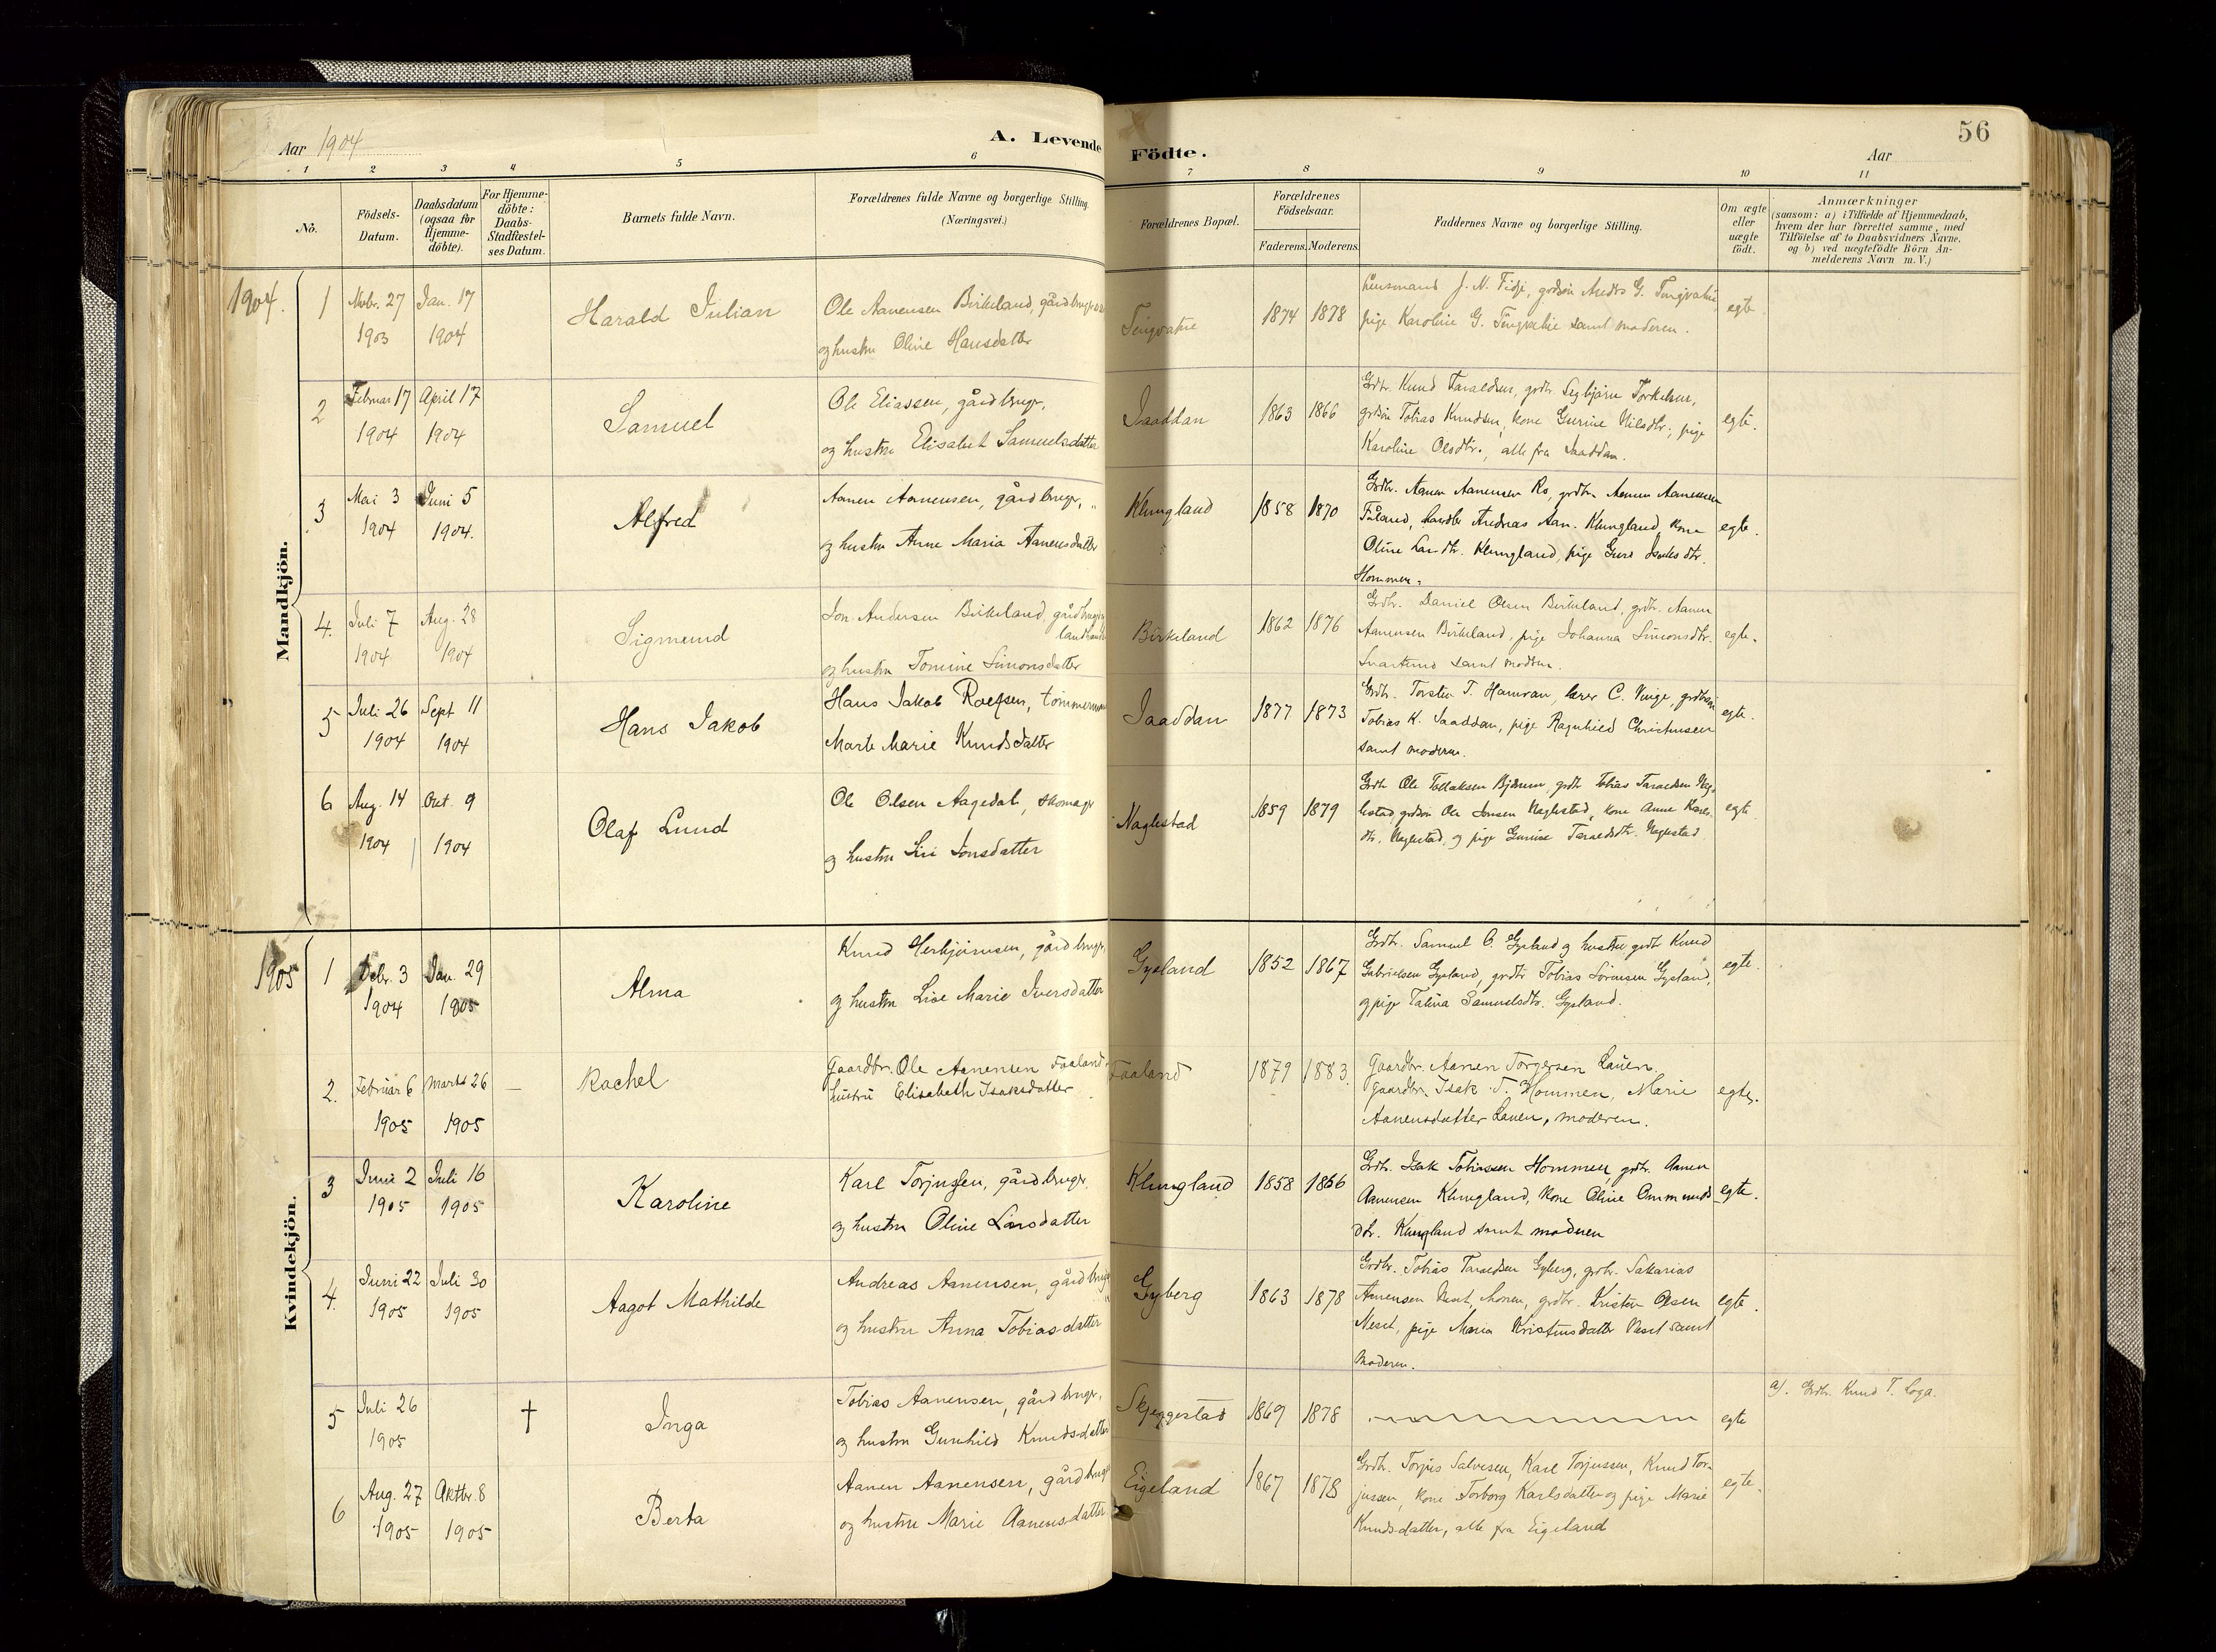 56
Aar 1904
A. Levende Födte.
Aar
1 2 3 4 5 6 7 8 9 10 11
No.
Födsels-
Datum.
Daabsdatum
(ogsaa for
Hjemme-
döbte).
For Hjemme-
döbte:
Daabs-
Stadfæstel-
ses Datum.
Barnets fulde Navn.
Forældrenes fulde Navne og borgerlige Stilling.
(Næringsvei.)
Forældrenes Bopæl.
Forældrenes
Födselsaar.
Faderens. Moderens.
Faddernes Navne og borgerlige Stilling.
Om ægte
eller
uægte
født.
Anmærkninger
(saasom: a) i Tilfælde af Hjemmedaab,
hvem der har forrettet samme, med
Tilföielse af to Daabsvidners Navne.
og b) ved uegtefödte Börn An-
melderens Navn m. V.)
Mandkjön.
1904.
1
Novbr. 27 Jan. 17
1903 1904
Harald Julian
Ole Aanensen Birkeland, gårdbruger
og hustru Oline Hansdatter
Tingvatne
1874 1878
Lensmand J. N. grdsön Andr's G. Tingvatne,
pige Karoline G. Tingvatne samt moderen.
egte
2
Februar 17 April 17
1904 1904
Samuel
Ole Eliassen, gårdbrugr,
og hustru Elisabet Samuelsdatter
Jaaddan
1863 1866
Grdbr. Knud Taraldsen, grdbr. Segbjørn Torkelsen,
grdsön Tobias Knudsen, kone Gurine Nilsdtr., pige
Karoline Olsdtr., alle fra Jaaddan.
egte.
3
Mai 3 Juni 5
1904 1904.
Alfred
Aanen Aanensen, gårdbrugr,
og hustru Anne Maria Aanensdatter
Klungland
1858 1870
Grdbr. Aanen Aanensen Ro, grdbr. Aanen Aanensen
Fåland, Andreas Aan. Klungland, kone
Oline Larsdtr. Klungland, pige Guro Isaksdtr.
Hommen.
egte.
4.
Juli 7 Aug. 28
1904 1904
Sigmund
Jon Andersen Birkeland, gårdbruger
og hustru Tomine Simonsdatter
Birkeland
1862 1876
Grdbr. Daniel Olsen Birkeland, grdbr. Aanen
Aanensen Birkeland, pige Johanna Simonsdtr.
samt modren.
egte.
5
Juli 26 Sept 11
1904 1904
Hans Jakob
Hans Jakob Roelfsen, tömmermand
Marte Marie Knudsdatter
Jaaddan
1877 1873
Grdbr. Torsten T. Hamran, lærer C. Vinge, grdbrsön
Tobias K. Jaaddan, pige Ragnhild Christensen
samt moderen.
egte.
6
Aug. 14 Okt. 9
1904 1904
Olaf Lund
Ole Olsen Aagedal, skomagr
og hustru Siri Jonsdatter
Naglestad
1859 1879
Grdbr. Ole Tellaksen grdbr Tobias Taraldsen Nag-
lestad, grdsön Ole Jonsen Naglestad, kone Anne Karls-
dtr. Naglestad, og pige Gurine Taraldsdtr. Naglestad
egte
Kvindekjön.
1905
1
Decbr. 3 Jan. 29
1904 1905
Alma
Knud Herbjörnsen, gårdbrugr,
og hustru Lise Marie Iversdatter
Gysland
1852 1867
Grdbr. Samuel O. Gysland og hustru grdbr Knud
Gabrielsen Gysland, grdbr Tobias Sörensen Gysland,
og pige Talina Samuelsdtr. Gysland.
egte.
2.
Februar 6 Marts 26 —
1905 1905
Rachel
Gaardbr. Ole Aanensen Faaland,
hustru Elisabeth Isaksdatter
Faaland
1879 1883
Gaardbr. Aanen Torgersen Lauen.
Gaardbr. Isak T. Hommen, Marie
Aanensdatter Lauen, moderen.
egte.
3
Juni 2 Juli 16
1905 1905
Karoline
Karl Torjussen, gårdbrugr,
og hustru Oline Larsdatter
Klungland
1858 1866
Grdbr. Isak Tobiassen Hommen, grdbr. Aanen
Aanensen Klungland, kone Oline Ommunds-
dtr. Klungland samt moderen
egte.
4.
Juni 22 Juli 30
1905 1905
Aagot Mathilde
Andreas Aanensen, gårdbrugr
og hustru Anna Tobiasdatter
Gyberg
1863 1878
Grdbr. Tobias Taraldsen Gyberg, grdbr. Sakarias
Aanensen Neset, konen, grdbr. Kristen Olsen
Neset, pige Maria Kristensdatter Neset samt
moderen.
egte.
5
Juli 26
1905
†
Inga
Tobias Aanensen, gårdbrugr,
og hustru Gunhild Knudsdatter
Skjeggestad
1869 1878
egte
a). Grdbr. Knud T. Loga.
6
Aug. 27 Oktbr. 8
1905 1905
Berta
Aanen Aanensen, gårdbrugr
og hustru Marie Aanensdatter.
Eigeland
1867 1878
Grdbr. Torjus Salvesen, Karl Torjussen, Knud Tor-
jussen, kone Torborg Karlsdatter og pige Marie
Knudsdatter, alle fra Eigeland
egte.